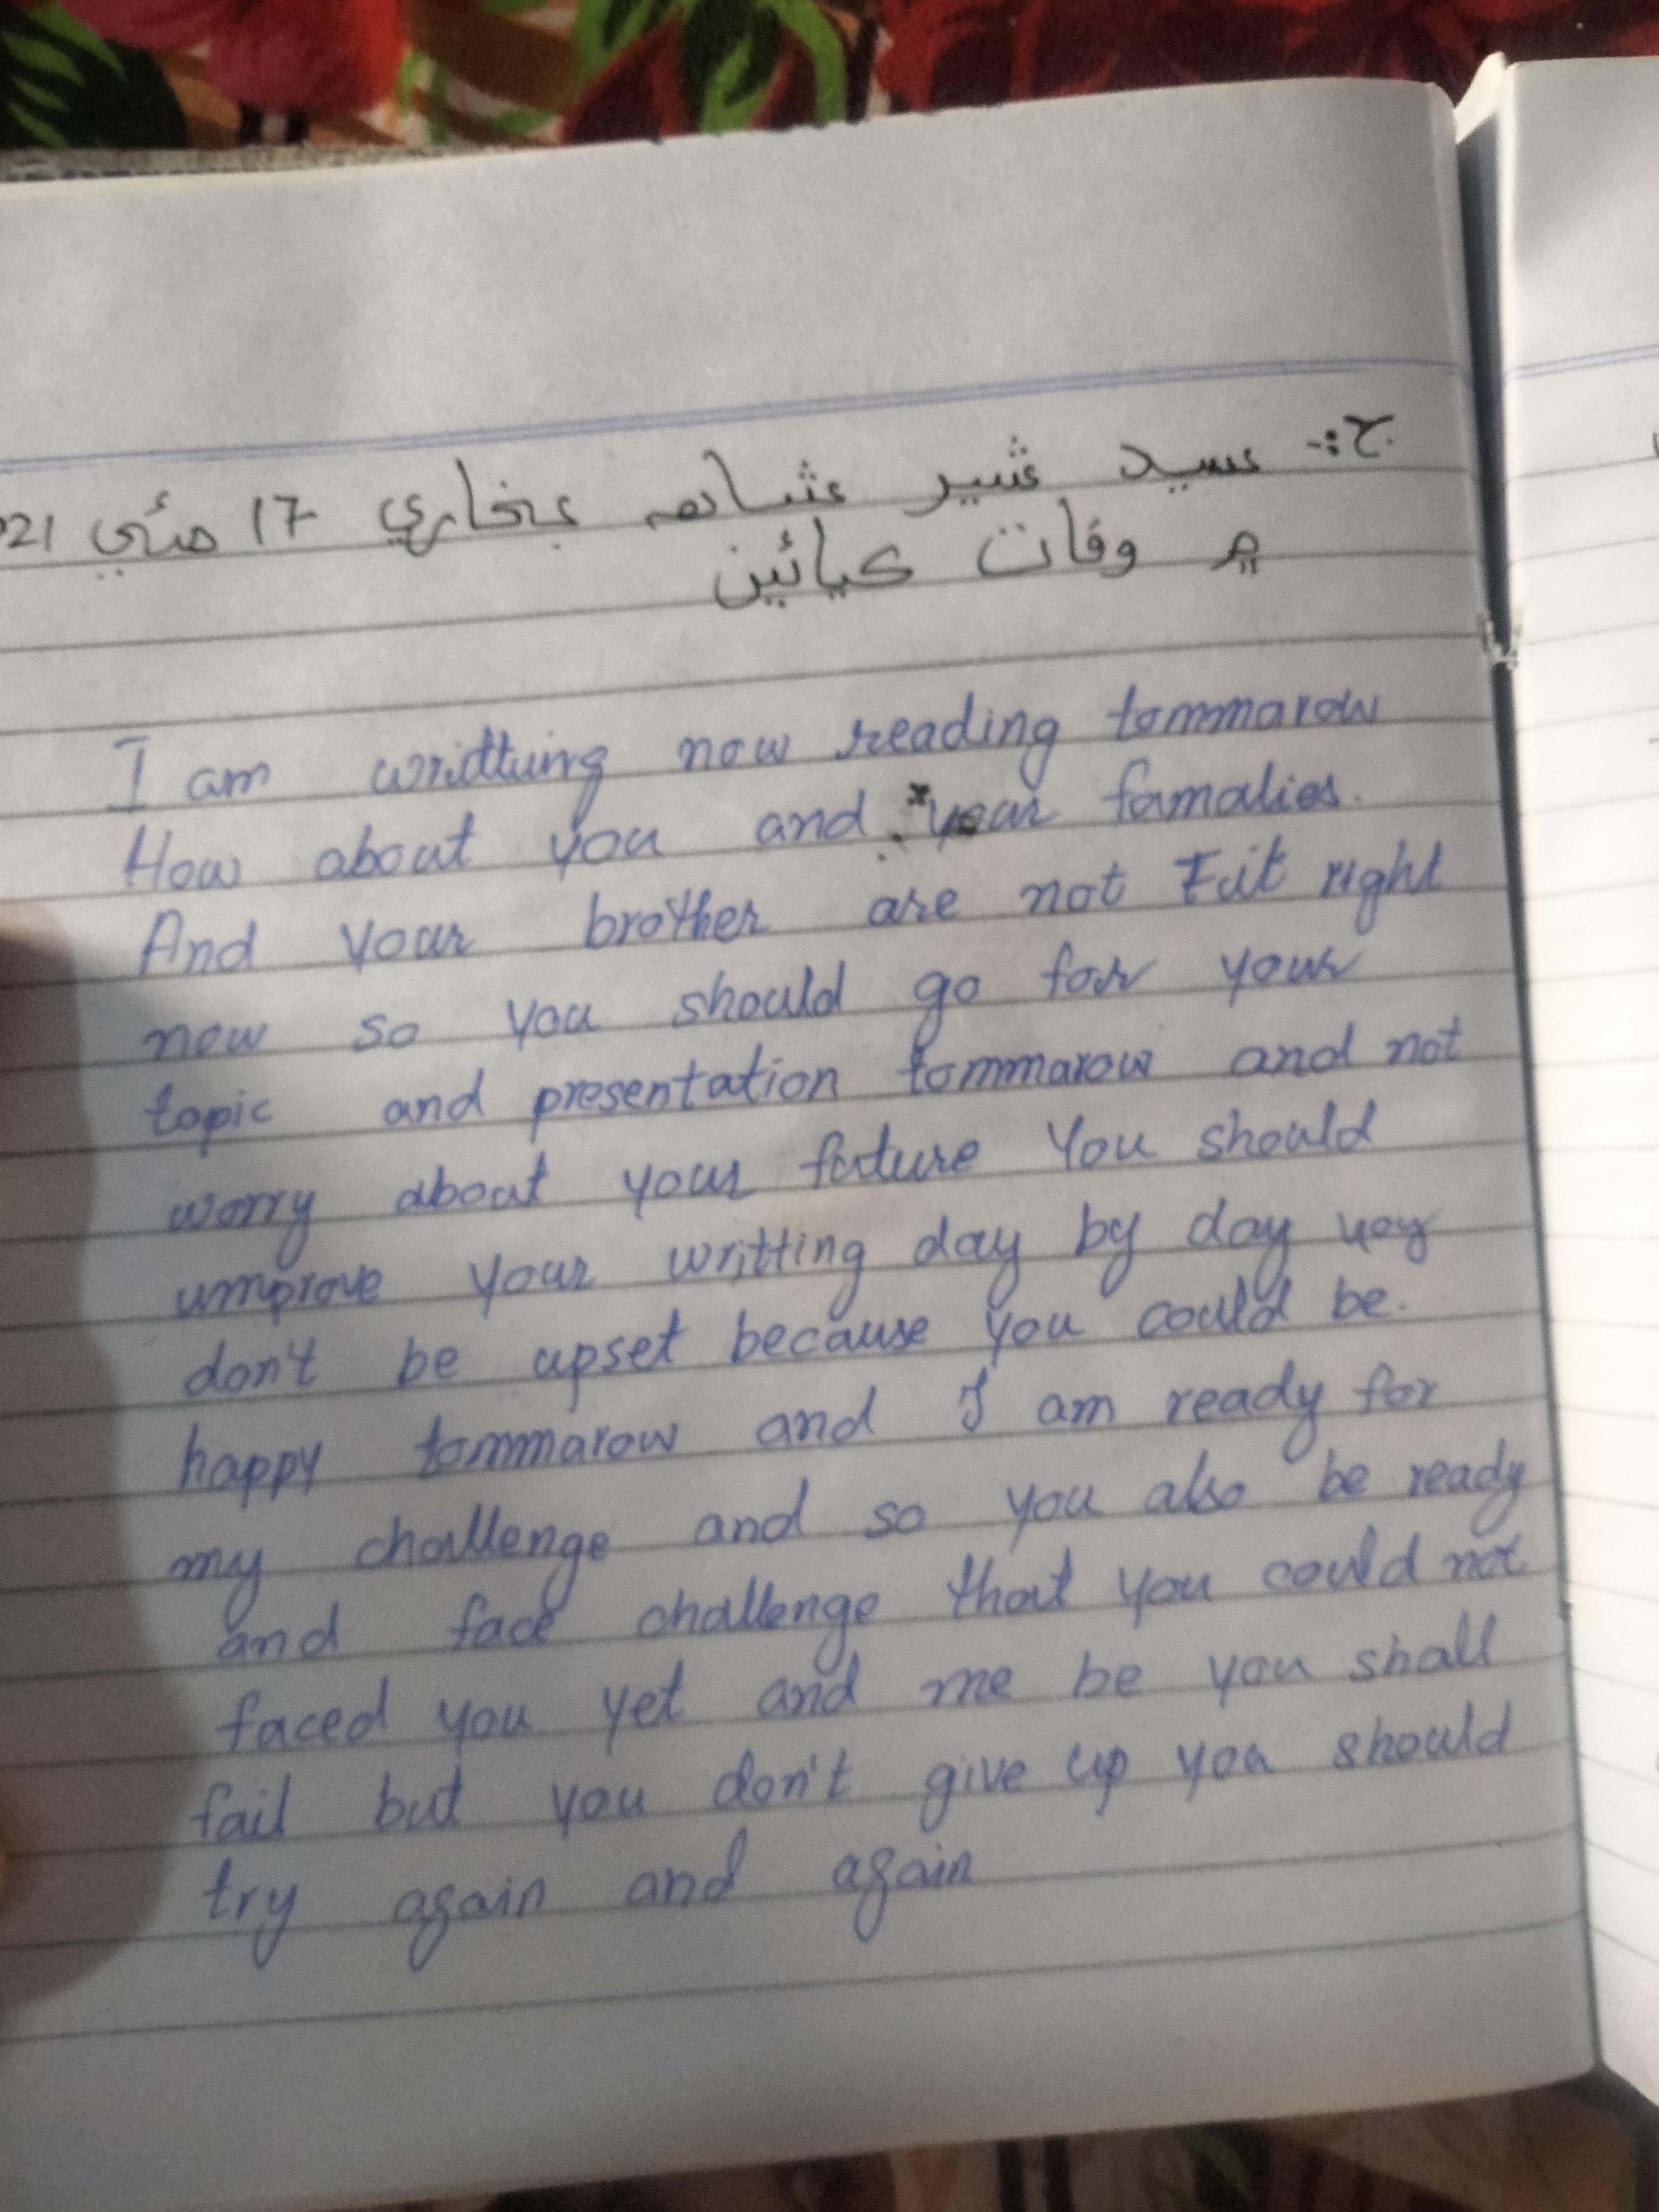 ج:- سيد شير شاهه بخاري 17 مئي 021
۾ وفات ڪيائين
I am writtuing now reading tommarow
How about you and your famalies.
And your brother are not Fit right
now so you should go for your
topic and presentation tommarow and not
worry about your future You should
umprove your writting day by day
don't be upset because you could be.
happy tommarow and I am ready for
my challenge and so you also be ready
and face challenge that you could not
faced you yet and me be you shall
fail but you don't give up you should
try again and again